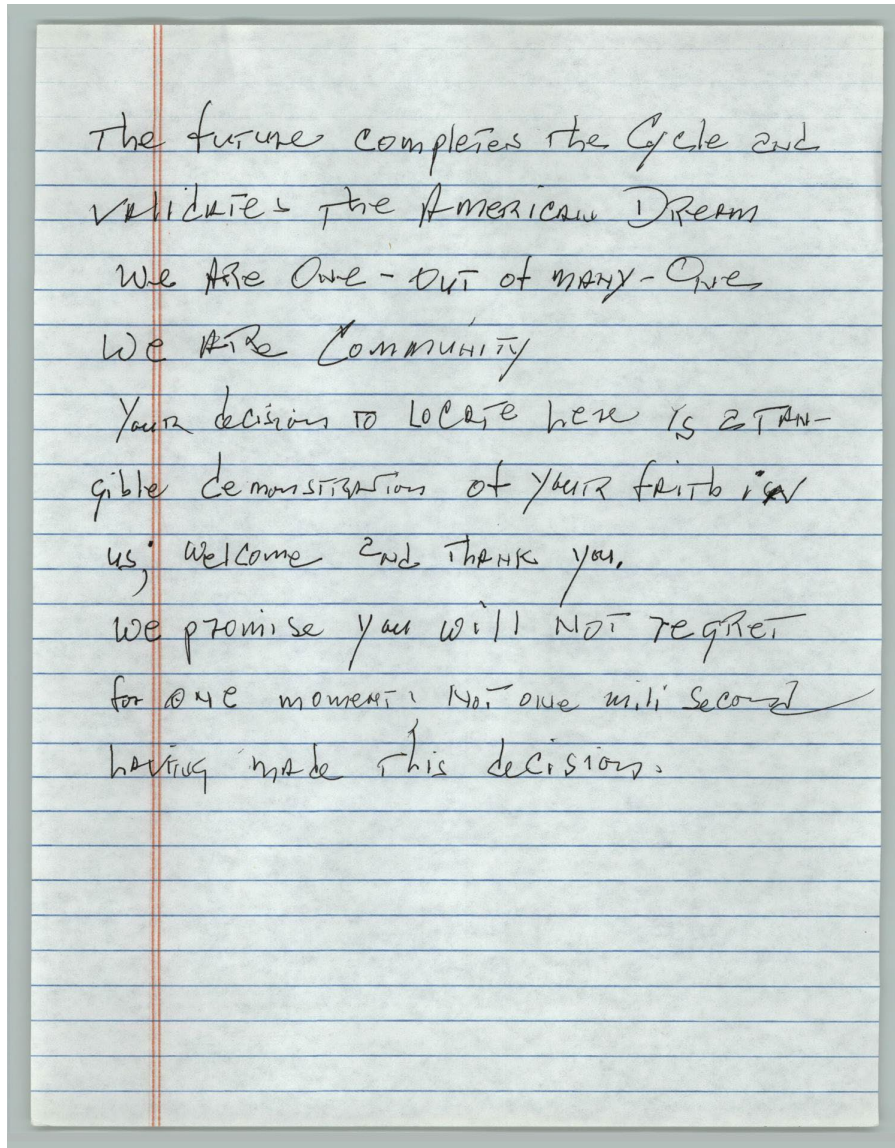 The future completes the Cycle and
validates the American Dream
We are One - out of many - One
We are Community
Your decision to locate here is a tan-
gible demonstration of your faith in
us; Welcome and thank you.
We promise you will not regret
for one moment; Not one mili second
having made this decision.